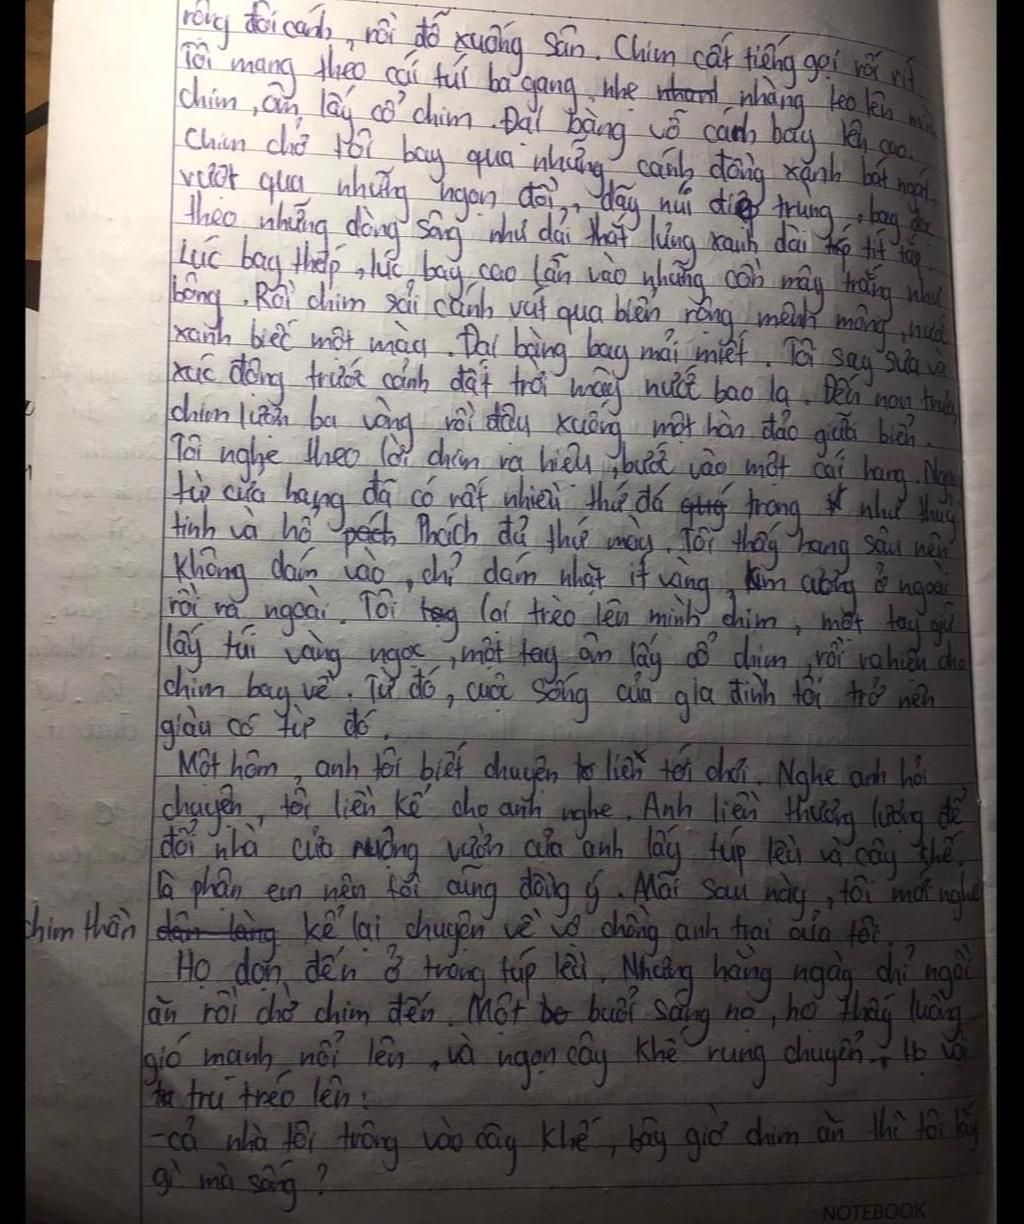 rộng đôi cánh, rồi đỗ xuống sân. Chim cất tiếng gọi rối rít
Tôi mang theo cái túi ba gang, nhẹ nhàng leo lên
chim, ôm lấy cổ chim. Đại bàng vỗ cánh bay lên cao.
Chim chở tôi bay qua những cánh đồng xanh bát ngát,
vượt qua những ngọn đồi, dãy núi điệp trùng, bay dọc
theo những dòng sông như dải thắt lưng xanh dài tít tắp.
Lúc bay thấp, lúc bay cao lẫn vào những cồn mây trắng như
bông. Rồi chim sải cánh vút qua biển rộng mênh mông, nước
xanh biếc một màu. Đại bàng bay mải miết. Tôi say sưa và
xúc động trước cảnh đất trời mây nước bao la. Đến non trưa,
chim lượn ba vòng rồi đậu xuống một hòn đảo giữa biển.
Tôi nghe theo lời chim ra hiệu, bước vào một cái hang. Ngay
từ cửa hang đã có rất nhiều thứ đá trong như thuỷ
tinh và hổ phách đủ thứ màu. Tôi thấy hang sâu nên
không dám vào, chỉ dám nhặt ít vàng, kim cương ở ngoài
rồi ra ngoài. Tôi lại trèo lên mình chim, một tay giữ
lấy túi vàng ngọc, một tay ôm lấy cổ chim, rồi ra hiệu cho
chim bay về. Từ đó, cuộc sống của gia đình tôi trở nên
giàu có từ đó.
Một hôm, anh tôi biết chuyện liền tới chơi. Nghe anh hỏi
chuyện, tôi liền kể cho anh nghe. Anh liền thương lượng để
đổi nhà cửa ruộng vườn của anh lấy túp lều và cây khế.
Là phận em nên tôi cũng đồng ý. Mãi sau này, tôi mới nghe
chim thần dân làng kể lại chuyện về vợ chồng anh trai của tôi.
Họ dọn đến ở trong túp lều. Nhưng hàng ngày chỉ ngồi
ăn rồi chờ chim đến. Một buổi sáng nọ, họ thấy luồng
gió mạnh nổi lên, và ngọn cây khế rung chuyển. Họ vội
tru tréo lên:
-cả nhà tôi trông vào cây khế, bây giờ chim ăn thì tôi lấy
gì mà sống?
NOTEBOOK